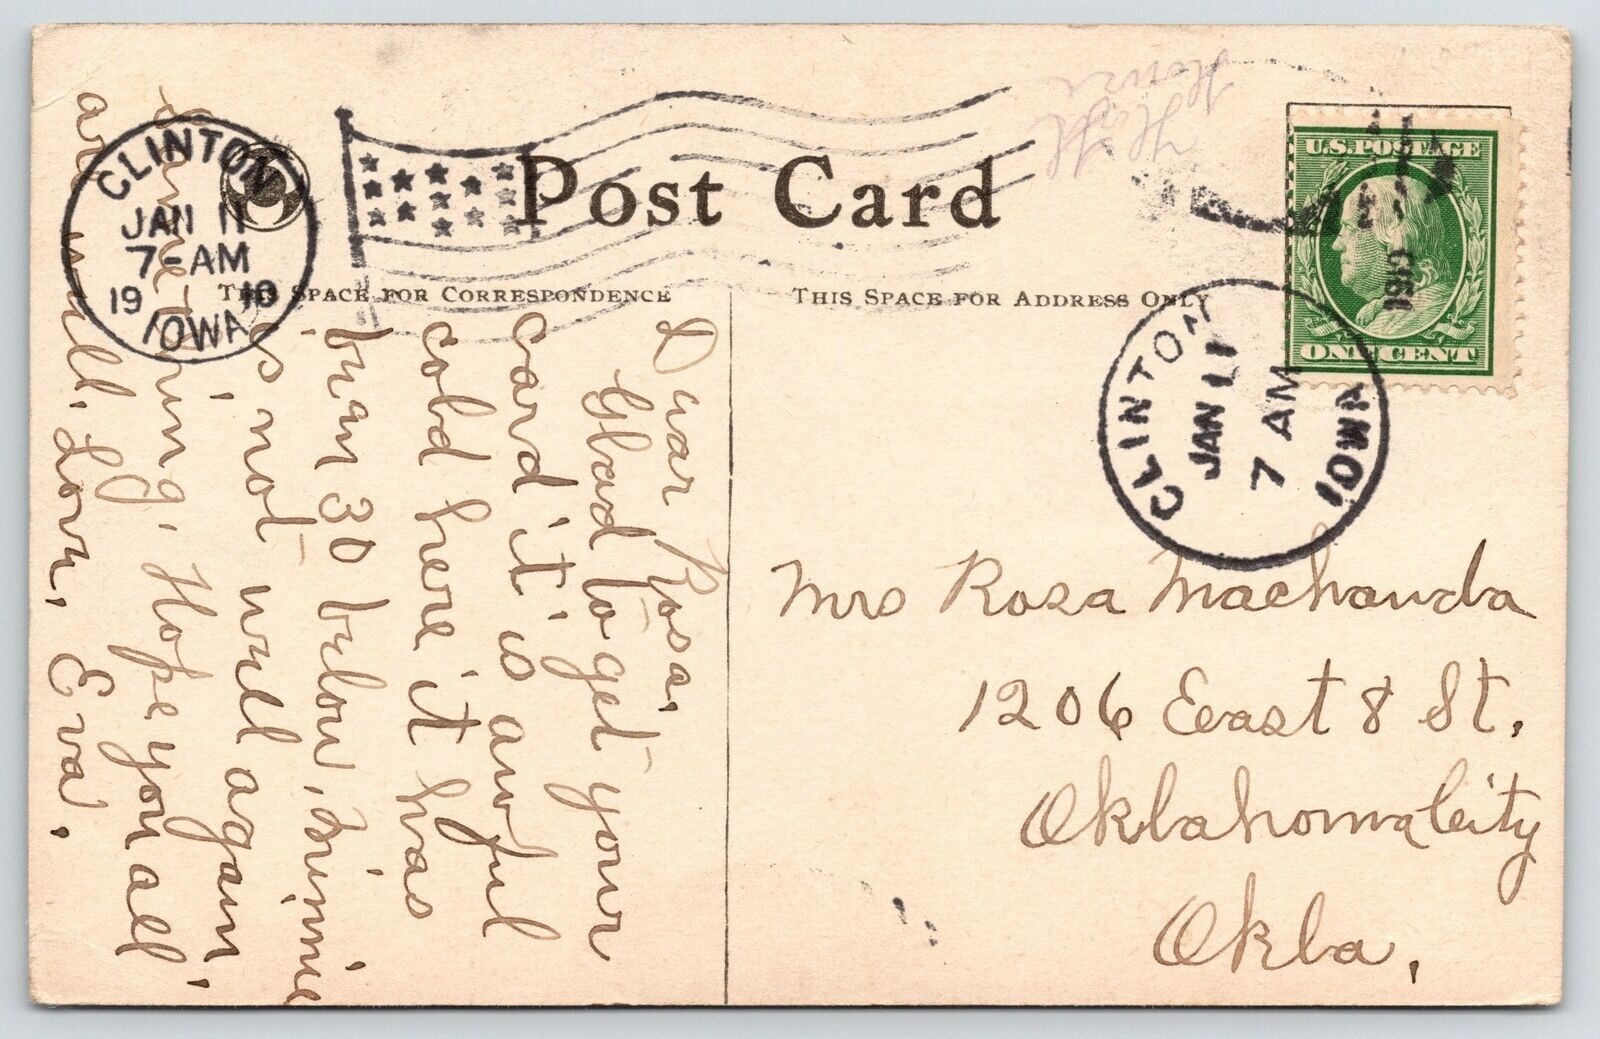 CLINTON
JAN 11
7-AM
1910
IOWA
Post Card
THIS SPACE FOR CORRESPONDENCE
THIS SPACE FOR ADDRESS ONLY
U.S. POSTAGE
ONE CENT
1910
CLINTON
JAN 11
7 AM
IOWA
Mrs Rosa Machanda
1206 East 8 St.
Oklahoma City
Okla.
Dear Rosa.
Glad to get your
card it is awful
cold here it has
been 30 below,
is not well again.
something, Hope you all
are well. Love, Eva.